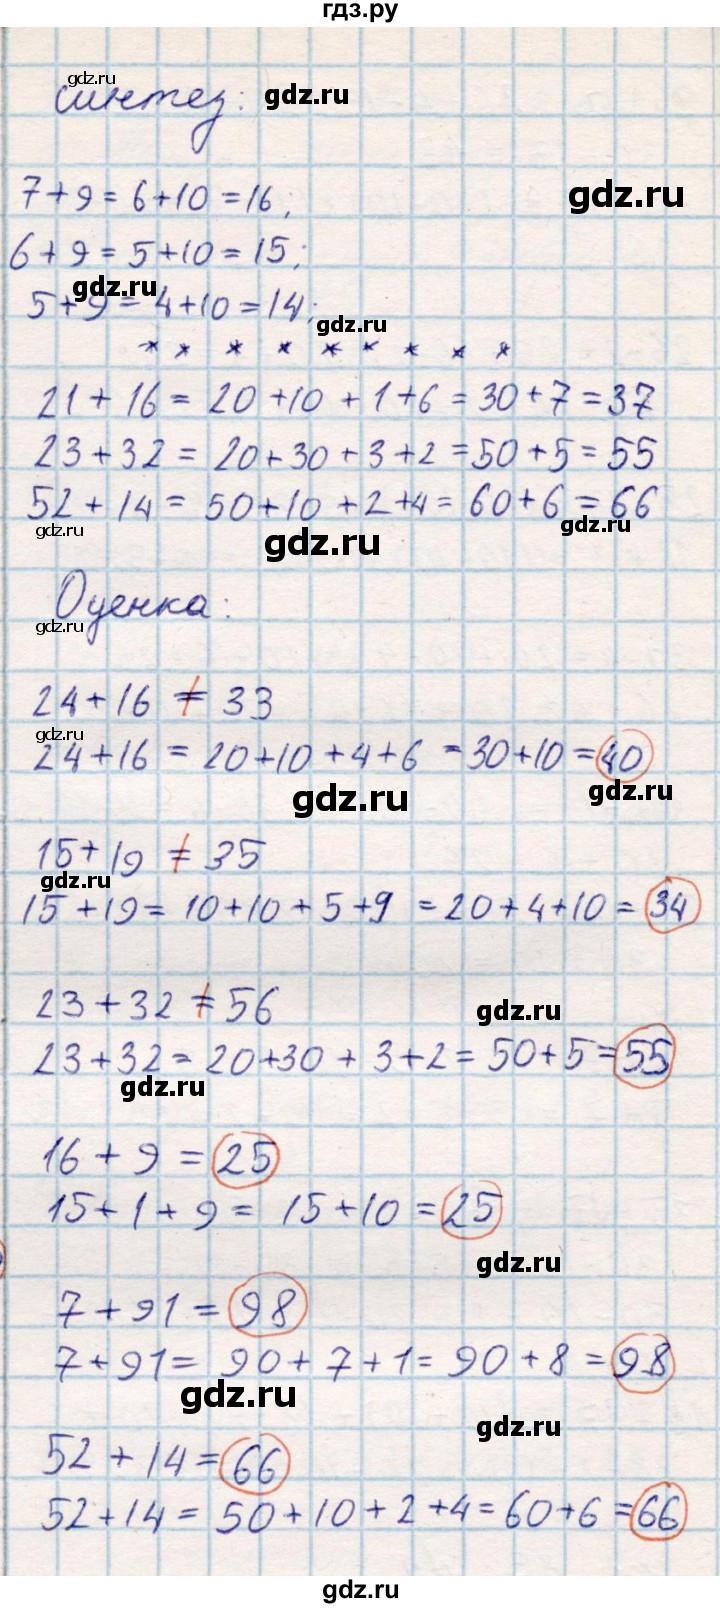 гдз.ру
gdz.ru
синтез: gdz.ru
7+9=6+10=16; gdz.ru
6+9=5+10=15;
gdz.ru
5+9=4+10=14;
gdz.ru
* * * * * * * * *
21+16=20+10+1+6=30+7=37
23+32=20+30+3+2=50+5=55
52+14=50+10+2+4=60+6=66
gdz.ru gdz.ru
gdz.ru
Оценка:
gdz.ru
24+16≠33
gdz.ru
24+16=20+10+4+6=30+10=40
gdz.ru gdz.ru
15+19≠35
gdz.ru
15+19=10+10+5+9=20+4+10=34
23+32≠56
gdz.ru
23+32=20+30+3+2=50+5=55
gdz.ru
16+9=25
15+1+9=15+10=25
gdz.ru
7+91=98
7+91=90+7+1=90+8=98
gdz.ru
gdz.ru
52+14=66
52+14=50+10+2+4=60+6=66
gdz.ru